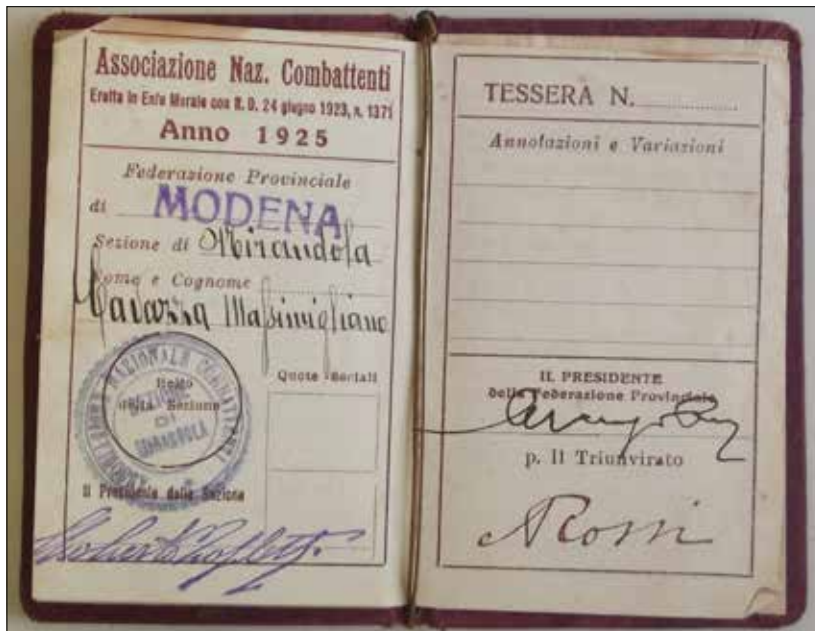 Associazione Naz. Combattenti
Eretta in Ente Morale con R. D. 24 giugno 1923, n. 1371
Anno 1925
Federazione Provinciale
di MODENA
Sezione di Mirandola
Nome e Cognome
Massimigliano
Bollo
della Sezione
ASSOCIAZIONE NAZIONALE COMBATTENTI
SEZIONE
DI
MIRANDOLA
Quote Sociali
Il Presidente della Sezione
TESSERA N.
Annotazioni e Variazioni
IL PRESIDENTE
della Federazione Provinciale
p. Il Triunvirato
Rossi